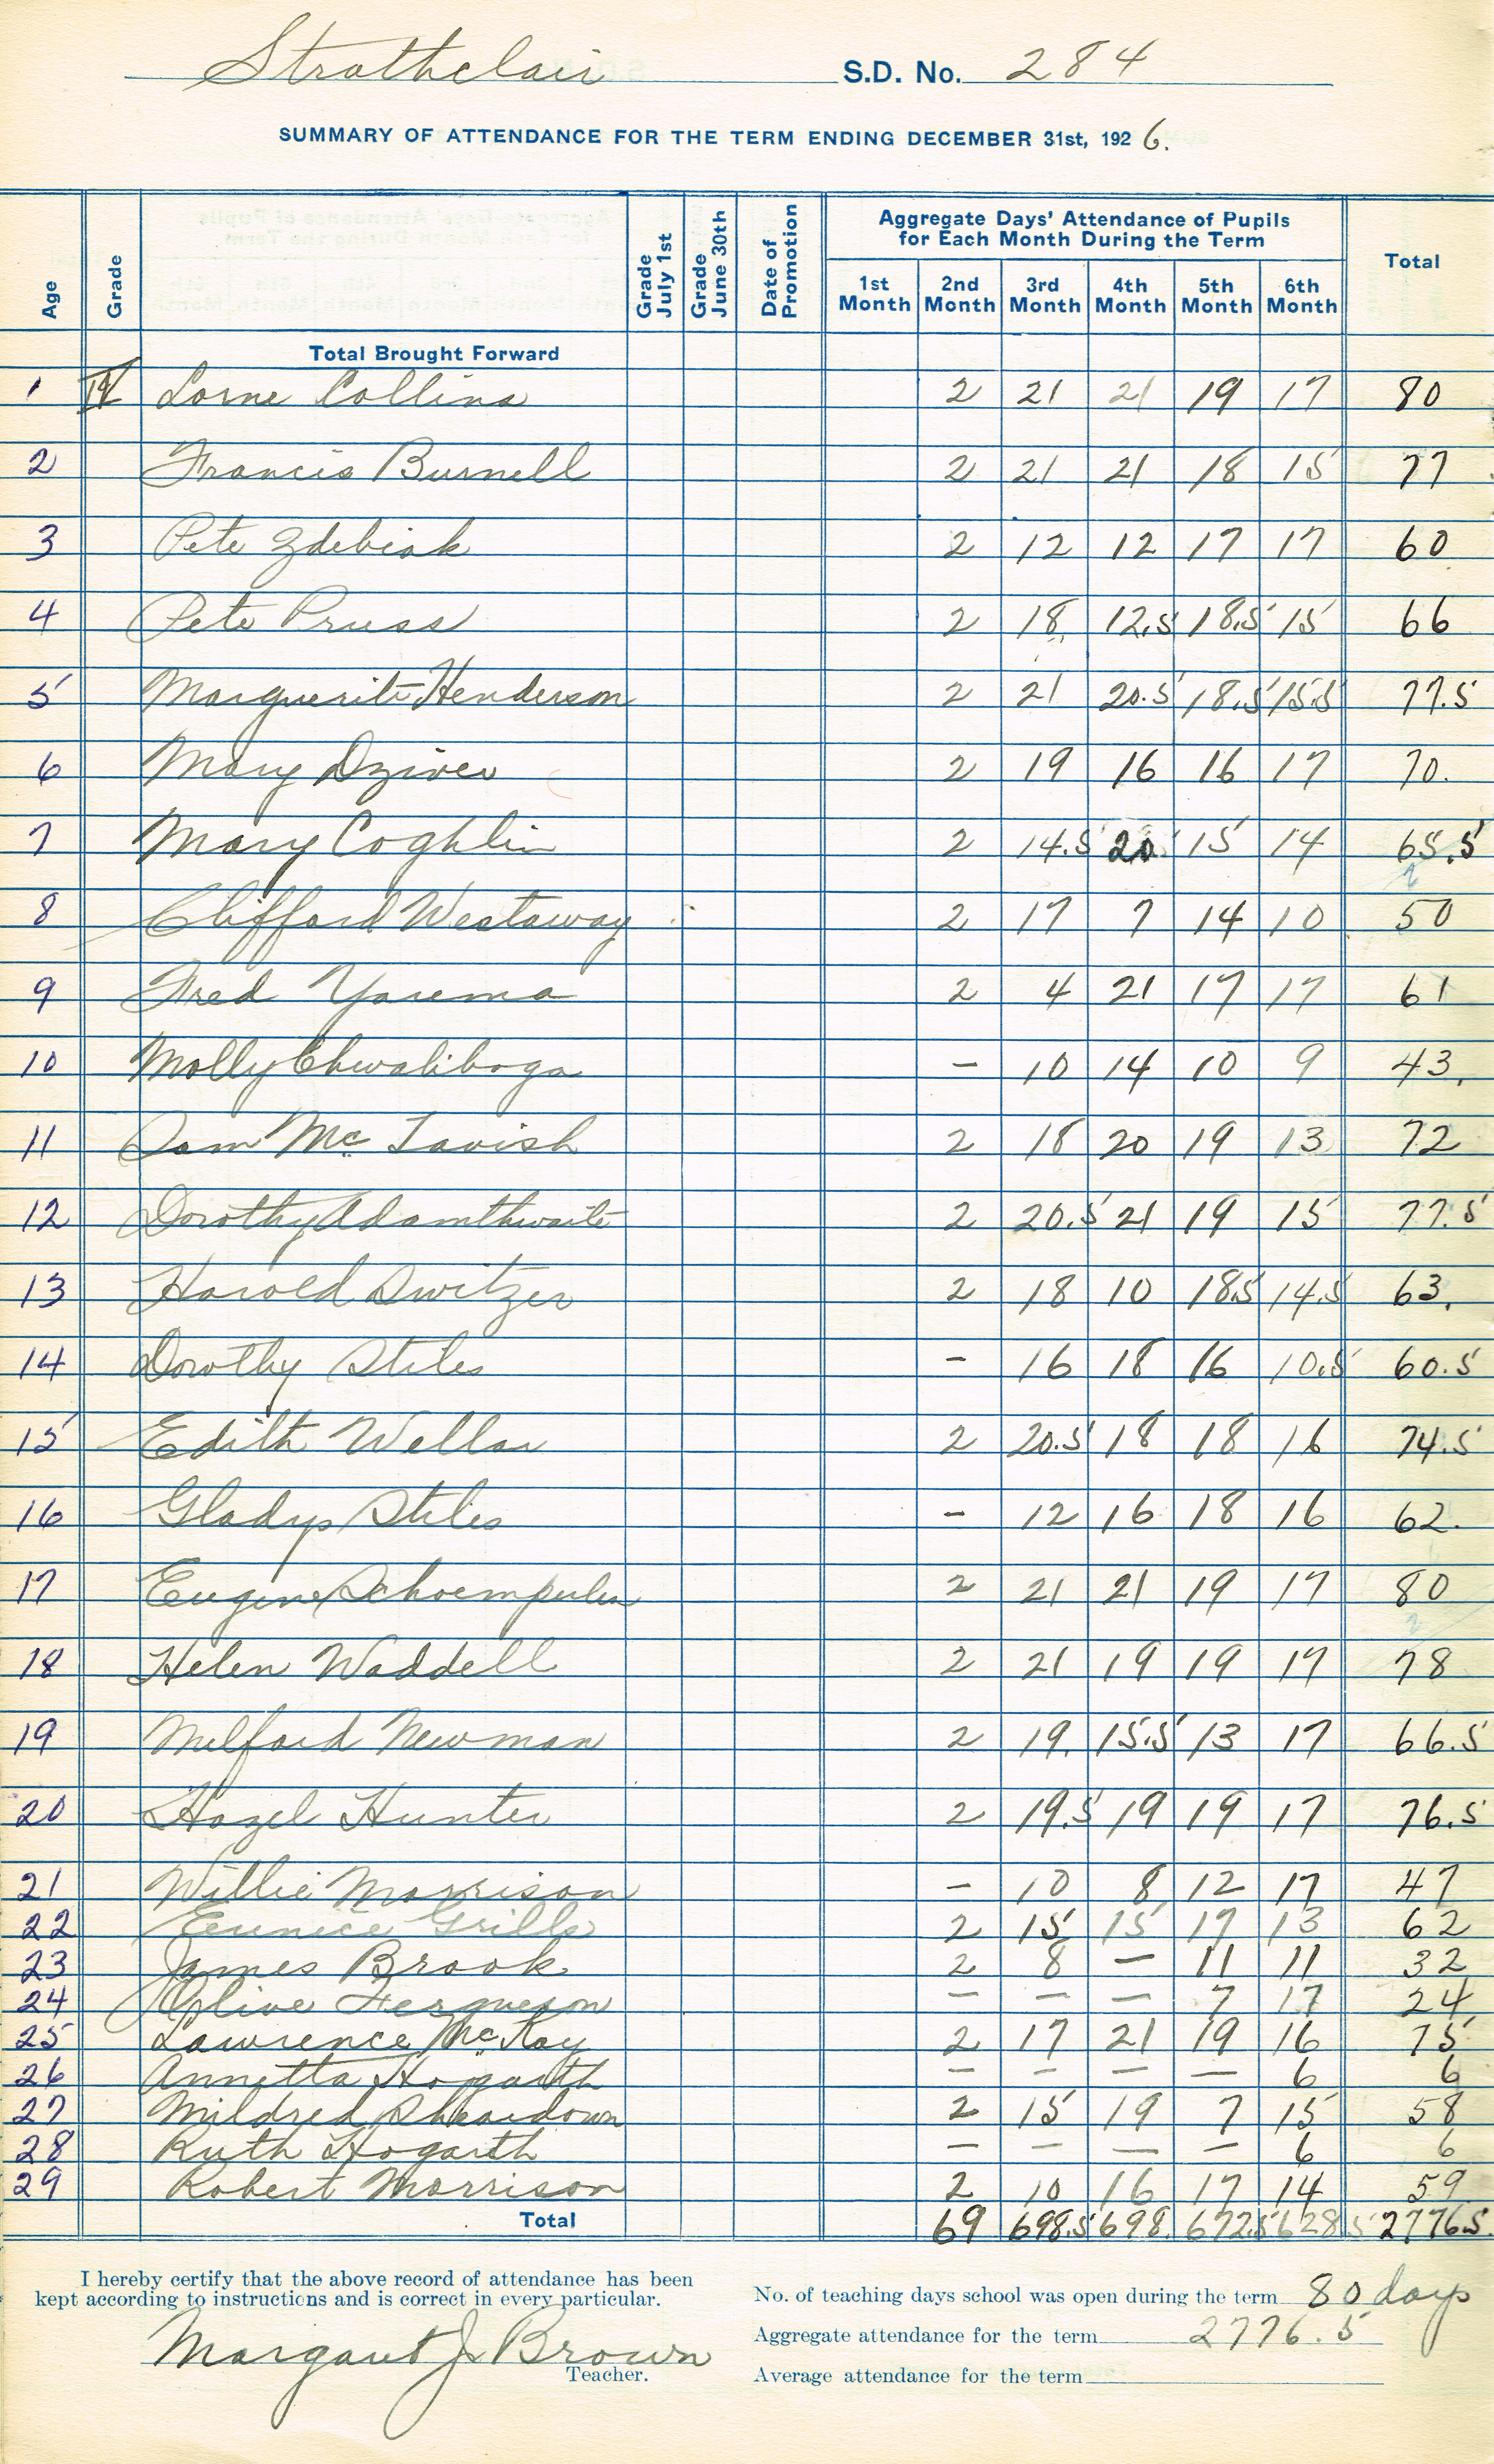 Strathclair S.D. No. 284
SUMMARY OF ATTENDANCE FOR THE TERM ENDING DECEMBER 31st, 1926.
Age Grade Grade July 1st Grade June 30th Date of Promotion Aggregate Days' Attendance of Pupils for Each Month During the Term Total
1st Month 2nd Month 3rd Month 4th Month 5th Month 6th Month
Total Brought Forward
1 IV Lorne Collins 2 21 21 19 17 80
2 Francis Burnell 2 21 21 18 15 77
3 Pete Zdebiak 2 12 12 17 17 60
4 Pete Pruss 2 18 12.5 18.5 15 66
5 Marguerite Henderson 2 21 20.5 18.5 15.5 77.5
6 Mary Dziver 2 19 16 16 17 70.
7 Mary Coghlin 2 14.5 20 15 14 65.5
8 Clifford Westaway 2 17 7 14 10 50
9 Fred Yarema 2 4 21 17 17 61
10 Molly Chwaliboga – 10 14 10 9 43.
11 Sam McTavish 2 18 20 19 13 72
12 Dorothy Adamthwaite 2 20.5 21 19 15 77.5
13 Harold Switzer 2 18 10 18.5 14.5 63.
14 Dorothy Stiles – 16 18 16 10.5 60.5
15 Edith Wellar 2 20.5 18 18 16 74.5
16 Gladys Stiles – 12 16 18 16 62.
17 Eugene Schoempulen 2 21 21 19 17 80
18 Helen Waddell 2 21 19 19 17 78
19 Milford Newman 2 19. 15.5 13 17 66.5
20 Hazel Hunter 2 19.5 19 19 17 76.5
21 Willie Morrison – 10 8 12 17 47
22 Eunice Grills 2 15 15 17 13 62
23 James Brook 2 8 – 11 11 32
24 Olive Ferguson – – – 7 17 24
25 Lawrence McKay 2 17 21 19 16 75
26 Annetta Hogarth – – – – 6 6
27 Mildred Sheardown 2 15 19 7 15 58
28 Ruth Hogarth – – – – 6 6
29 Robert Morrison 2 10 16 17 14 59
Total 69 698.5 698. 672.5 628.5 2776.5
I hereby certify that the above record of attendance has been
kept according to instructions and is correct in every particular.
Margaret J. Brown
Teacher.
No. of teaching days school was open during the term 80 days
Aggregate attendance for the term 2776.5
Average attendance for the term